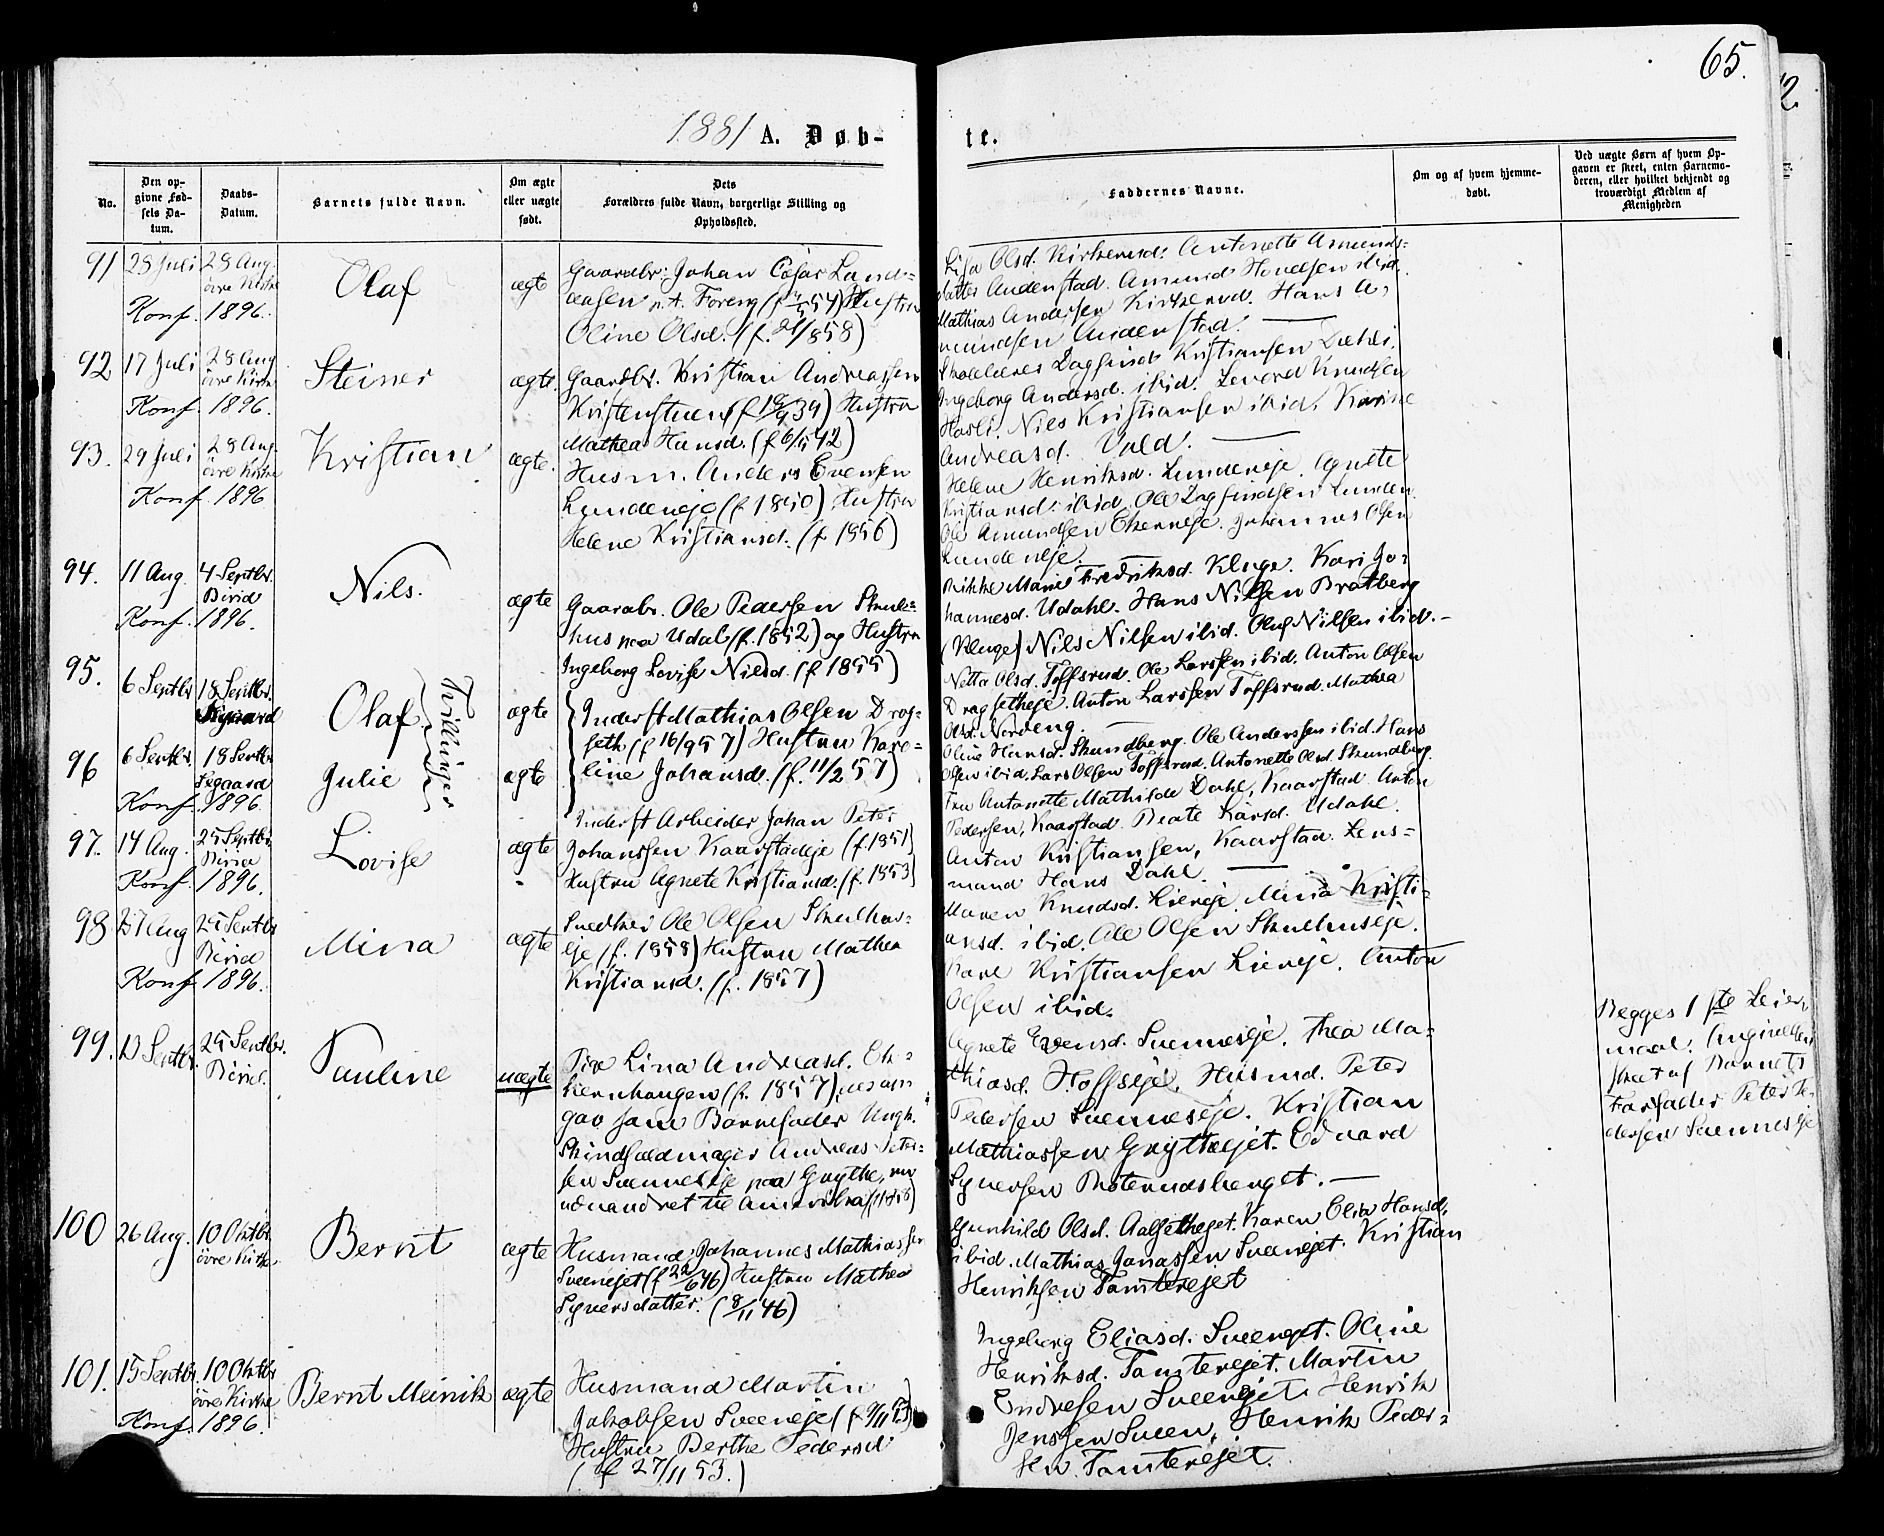 65.
1881 A. Døb-
te.
No.
Den op-
givne Fød-
sels Da-
tum.
Daabs-
Datum.
Barnets fulde Navn.
Om ægte
eller uægte
født.
Dets
Forældres fulde Navn, borgerlige Stilling og
Opholdssted.
Faddernes Navne.
Om og af hvem hjemme-
døbt.
Ved uægte Børn af hvem Op-
gaven er skeet, enten Barnemo-
deren, eller hvilket bekjendt og
troværdigt Medlem af
Menigheden
91 28 Juli 28 Aug.
övre Kirke
Konf. 1896.
Olaf
ægte
Gaardbr. Johan Cæsar
Hustru
Oline Olsd.
Lisa Olsd. Antonette Amunds=
datter Andenstad. Amund ibid.
Mathias Andersen Hans A=
mundsen Andenstad.
92 17 Juli 28 Aug
övre Kirke
Konf. 1896.
Steiner
ægte.
Gaardbr. Kristian Andreassen
Hustru
Mathea Hansd. (f 6/5 42)
Dagfind Kristiansen Dæhli.
Ingeborg Andersd. ibid. Knudsen
Nils Kristiansen ibid. Karine
Andreasd. Vold.
93. 29 Juli 28 Aug.
övre Kirke
Konf. 1896
Kristian
ægte.
Husm. Anders Evensen
Lundeneje (f 1850) Hustru
Helene Kristiansd. (f. 1856)
Helene Henriksd. Lundeneje. Agnete
Kristiansd. ibid. Ole Dagfindsen Lunden.
Ole Amundsen Johannes Olsen
Lundeneje.
94. 11 Aug. 4 Septbr.
Birid
Konf. 1896.
Nils.
ægte
Gaardbr. Ole Pedersen Skule=
hus paa Udal (f. 1852) og Hustru
Ingeborg Lovise Nilsd. (f 1855)
Rikke Marie Fredriksd. Kluge. Kari Jo=
hannesd. Udahl. Hans Nilsen Bratberg
(Kluge) Nils Nilsen ibid. Oluf Nilsen ibid.
95. 6 Septbr 18 Septbr.
Olaf
Tvillinger
ægte
Inderst Mathias Olsen Drag=
seth (f 16/9 57) Hustru Kare=
line Johansd. (f. 11/2 57)
Netta Olsd. Toffsrud. Ole Larssen ibid. Anton Olsen
Dragsetheje. Anton Larssen Toffsrud. Mathea
Olsd. Nordeng.
96 6 Septbr. 18 Septbr
Segaard
Konf. 1896.
Julie
ægte
Oline Hansd. Skundberg. Ole Anderssen ibid. Hans
Olsen ibid. Lars Olsen Toffsrud. Antonette Olsd. Skundberg.
97. 14 Aug. 25 Septbr
Birid
Konf. 1896.
Lovise
ægte
Inderst Arbeider Johan Peter
Johanssen Kaarstadeje (f. 1851)
Hustru Agnete Kristiansd. (f. 1853)
Fru Antonette Mathilde Dahl, Kaarstad. Anton
Pedersen, Kaarstad. Beate Larsd. Udahl.
Anton Kristiansen, Kaarstad. Lens=
mand Hans Dahl.
98 27 Aug 25 Septbr
Birid
Konf. 1896.
Mina
ægte
Snedker Ole Olsen Skulhus=
eje (f. 1858) Hustru Mathea
Kristiansd. (f. 1857)
Maren Knudsd. Lieneje. Mina Kristi=
ansd. ibid. Ole Olsen Skulhuseje.
Karl Kristiansen Lieneje. Anton
Olsen ibid.
99. 13 Septbr. 25 Septbr.
Birid.
Pauline
uægte
Pige Lina Andreasd. Ek=
hernhaugen (f. 1857), der an=
gav som Barnefader Ungk.
Skindfeldmager Andreas Peter=
sen Svenneseje paa Grythe, nu
udvandret til Amerika
Agnete Evensd. Svenneseje. Thea Ma=
thiasd. Hoffseje. Husmd. Peter
Pedersen Svenneseje. Kristian
Mathiassen Gryttejet. Edvard
Syversen
Begges 1ste Leier=
maal. Angivelsen
skeet af Barnets
Farfader Peter Pe=
dersen Svenneseje
100 26 Aug. 10 Oktbr.
övre Kirke
Bernt
ægte
Husmand Johannes Mathiassen
Sveenejet (f 22/6 46) Hustru Mathea
Syversdatter. (8/11 46)
Gunhild Olsd. Karen Elise Hansd.
ibid. Mathias Jonassen Sveenejet. Kristian
Henriksen
101. 15 Septbr. 10 Oktbr
övre Kirke
Konf. 1896.
Bernt Meinik
ægte
Husmand Martin
Jakobsen Sveeneje
Hustru Berthe Pedersd
(f 27/11 53.)
Ingeborg Eliasd. Sveenget. Oline
Henriksd. Martin
Endresen Sveenejet. Henrik
Jenssen Sveen, Henrik Peder=
sen